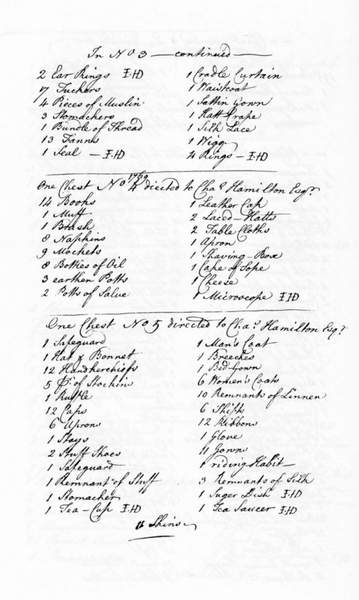 In No 3 — continued —
2 Ear Rings I·HD
17 Tuckers
4 Pieces of Muslin
3 Stomachers
1 Bundle of Thread
13 Fanns
1 Seal — I·HD
1 Cradle Curtain
1 Waistcoat
1 Sattin Gown
1 Hatt Crape
1 Silk Lace
1 Wigg
4 Rings — I·HD
One Chest No 4 directed to Chas Hamilton Esqr.
14 Books
1 Muff
1 Brush
8 Napkins
9 Mockets
8 Bottles of Oil
3 earthen Potts
2 Potts of Salve
1 Leather Cap
2 Laced Hatts
2 Table Cloths
1 Apron
1 Shaving Box
1 Cake of Sope
1 Cheese
1 Microscope I·HD
One Chest No 5 directed to Chas. Hamilton Esqr.
1 Safeguard
1 Hat & Bonnet
12 Handkerchiefs
5 Pr. of Stockin
1 Ruffle
12 Caps
6 Aprons
1 Stays
2 Stuff Shoes
1 Safeguard
1 Remnant of Stuff
1 Stomacher
1 Tea-Cup I·HD
1 Man's Coat
1 Breeches
1 Bed-Gown
6 Women's Coats
10 Remnants of Linnen
6 Shifts
12 Ribbons
1 Glove
11 Gowns
1 riding Habit
3 Remnants of Silk
1 Suger Dish I·HD
1 Tea Saucer I·HD
Skins